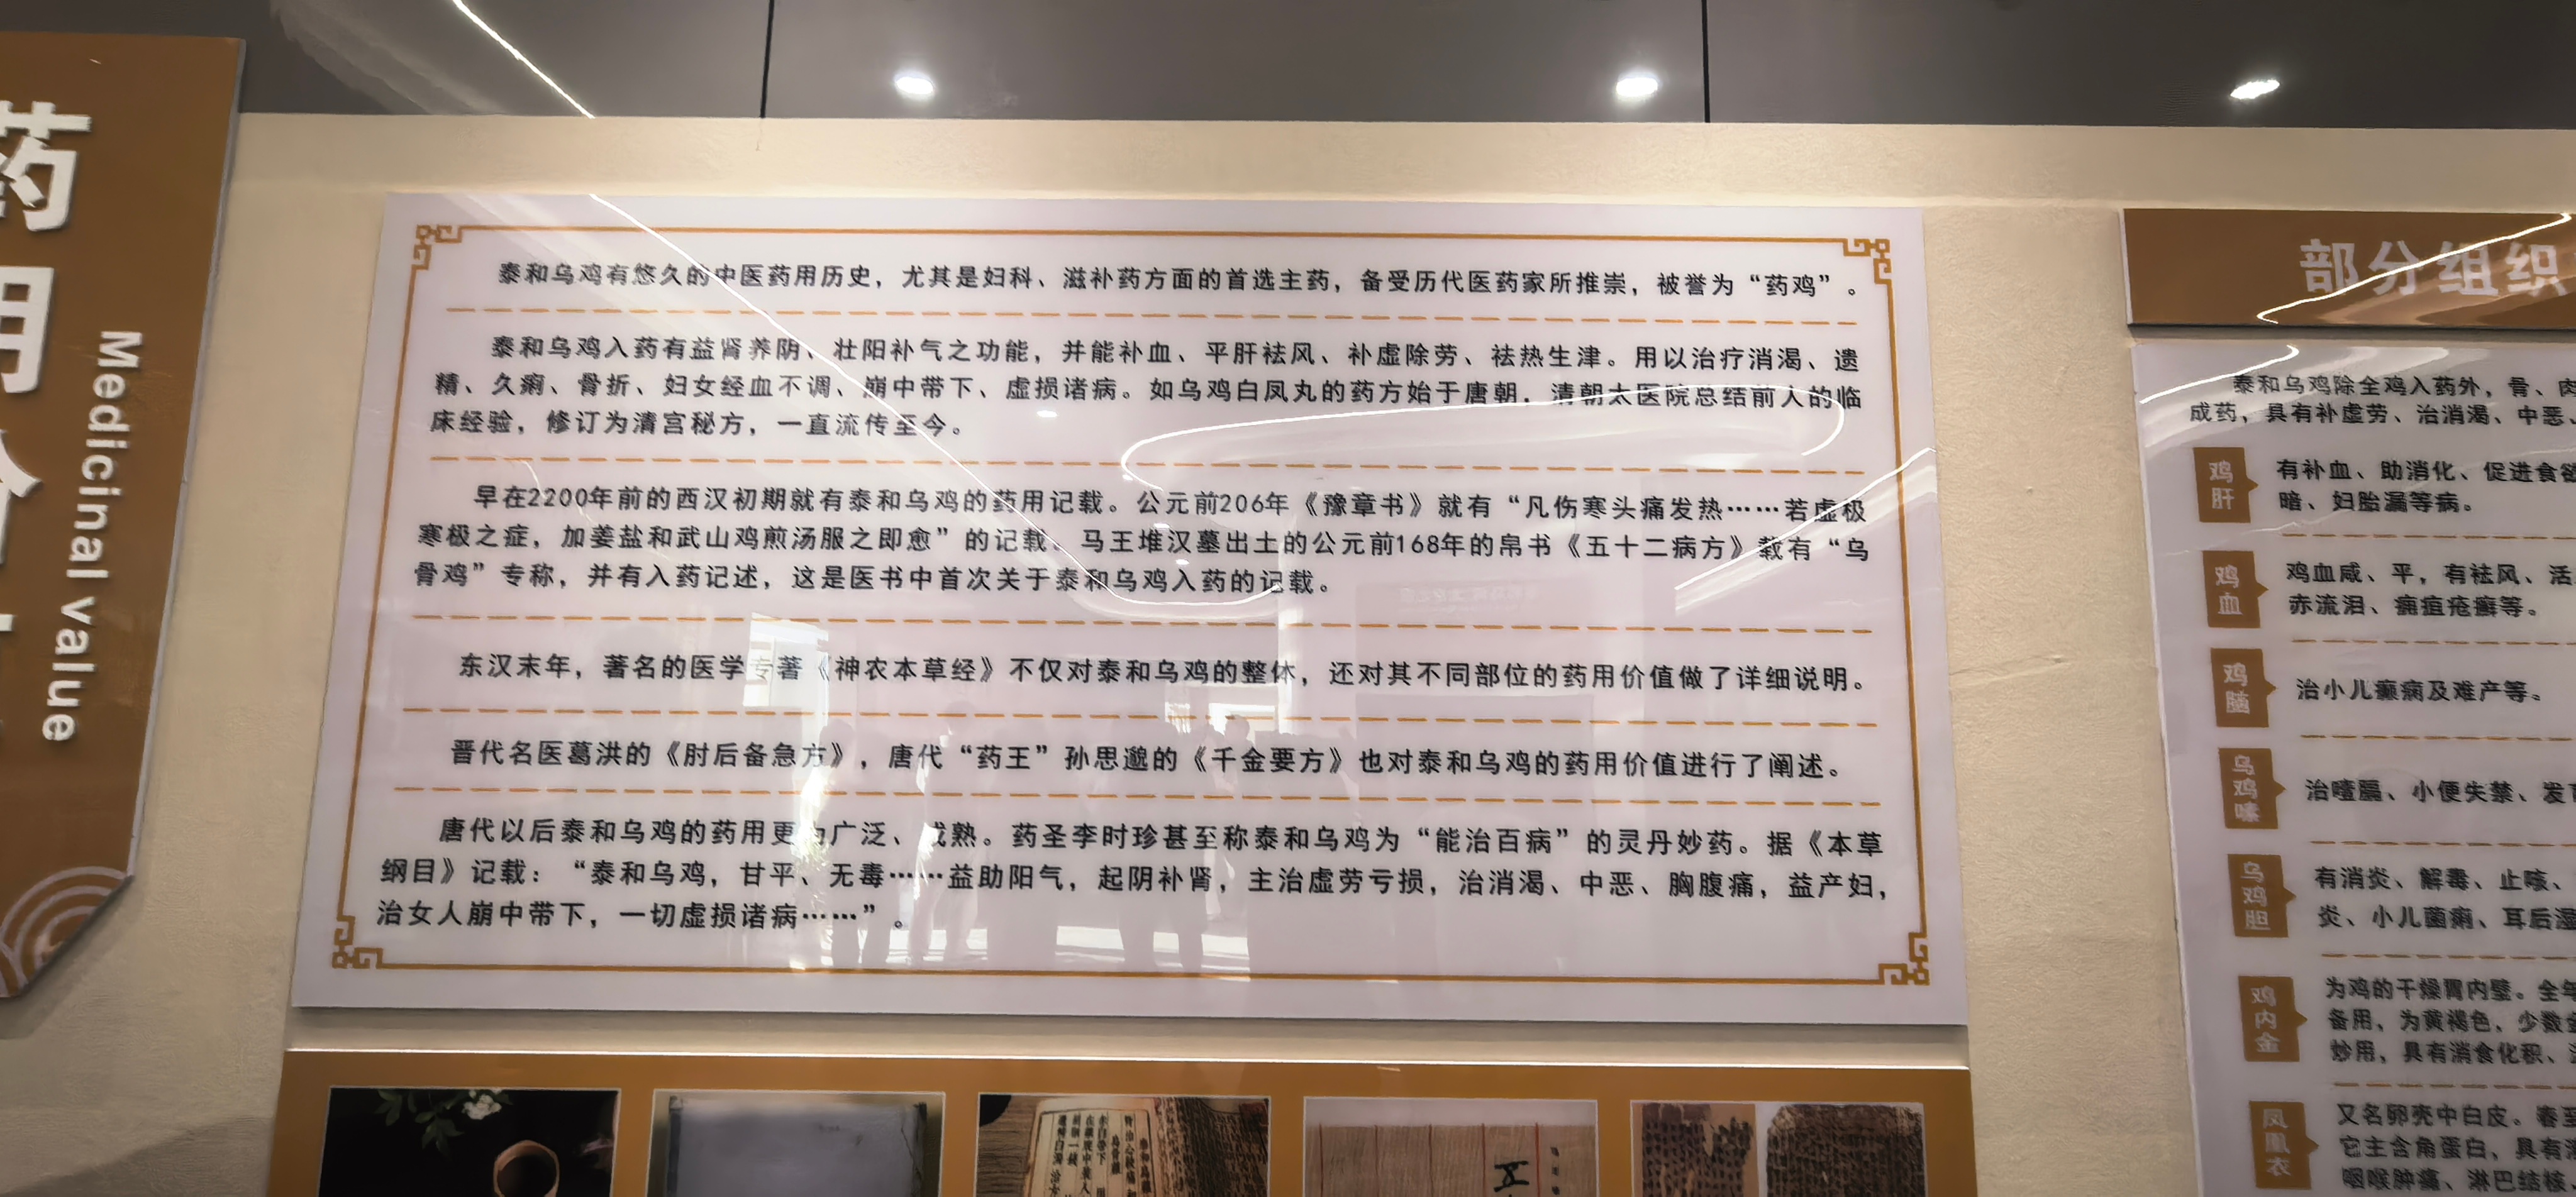 药
用
Medicinal value
泰和乌鸡有悠久的中医药用历史，尤其是妇科、滋补药方面的首选主药，备受历代医药家所推崇，被誉为“药鸡”。
泰和乌鸡入药有益肾养阴、壮阳补气之功能，并能补血、平肝祛风、补虚除劳、祛热生津。用以治疗消渴、遗
精、久痢、骨折、妇女经血不调、崩中带下、虚损诸病。如乌鸡白凤丸的药方始于唐朝，清朝太医院总结前人的临
床经验，修订为清宫秘方，一直流传至今。
早在2200年前的西汉初期就有泰和乌鸡的药用记载。公元前206年《豫章书》就有“凡伤寒头痛发热……若虚极
寒极之症，加姜盐和武山鸡煎汤服之即愈”的记载。马王堆汉墓出土的公元前168年的帛书《五十二病方》载有“乌
骨鸡”专称，并有入药记述，这是医书中首次关于泰和乌鸡入药的记载。
东汉末年，著名的医学专著《神农本草经》不仅对泰和乌鸡的整体，还对其不同部位的药用价值做了详细说明。
晋代名医葛洪的《肘后备急方》，唐代“药王”孙思邈的《千金要方》也对泰和乌鸡的药用价值进行了阐述。
唐代以后泰和乌鸡的药用更为广泛、成熟。药圣李时珍甚至称泰和乌鸡为“能治百病”的灵丹妙药。据《本草
纲目》记载：“泰和乌鸡，甘平、无毒……益助阳气，起阴补肾，主治虚劳亏损，治消渴、中恶、胸腹痛，益产妇，
治女人崩中带下，一切虚损诸病……”。
部分组织
泰和乌鸡除全鸡入药外，骨、肉
成药，具有补虚劳、治消渴、中恶、
鸡肝
有补血、助消化、促进食欲
暗、妇胎漏等病。
鸡血
鸡血咸、平，有祛风、活
赤流泪、痈疽疮癣等。
鸡脑
治小儿癫痫及难产等。
乌鸡嗉
治噎膈、小便失禁、发
乌鸡胆
有消炎、解毒、止咳、
炎、小儿菌痢、耳后湿
鸡内金
为鸡的干燥胃内壁。全年
备用，为黄褐色，少数
炒用，具有消食化积、
凤凰衣
又名卵壳中白皮。春至
它主含角蛋白，具有
咽喉肿痛、淋巴结核
五